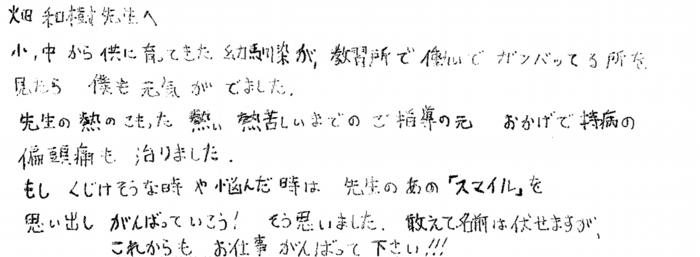 畑 和樹先生へ
小,中から供に育ってきた幼馴染が,教習所で働いてガンバってる所を
見たら 僕も元気がでました.
先生の熱のこもった 熱い 熱苦しいまでのご指導の元 おかげで持病の
偏頭痛も 治りました.
もし くじけそうな時や悩んだ時は 先生のあの「スマイル」を
思い出し がんばっていこう! そう思いました. 敢えて名前は伏せますが,
これからも お仕事 がんばって下さい!!!